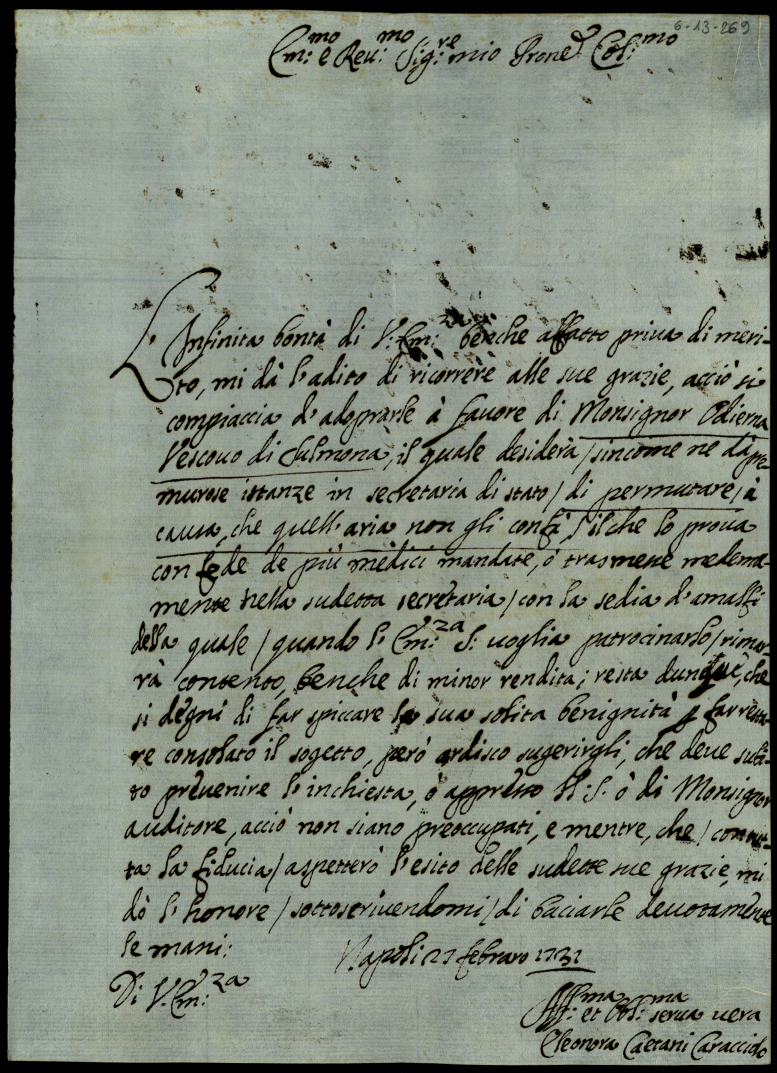 6-13-269
Em:mo e Reu:mo Sig:re mio Prone Col:mo
L'Infinita bontà di V: Em:za benche affatto priua di meri-
to, mi dà l'adito di ricorrere alle sue grazie, acciò si
compiaccia d'adoprarle à fauore di Monsignor Odierna
Vescouo di Sulmona, il quale desidera / sincome ne dà pre-
murose istanze in secretaria di stato / di permutare / à
causa, che quell'aria non gli confà / ilche lo proua
con fede de più medici mandate, ò trasmesse medema-
mente nella sudetta secretaria / con la sedia d'amalfi
della quale / quando l'Em:za S: uoglia patrocinarlo / rimar-
rà contento, benche di minor rendita; resta dunque, che
si degni di far spiccare la sua solita benignità p far resta-
re consolato il sogetto, però ardisco sugerirgli, che deue subi-
to preuenire l'inchiesta, ò appresso N: S: ò di Monsignor
auditore, acciò non siano preoccupati, e mentre, che / con tut-
ta la fiducia / aspetterò l'esito delle sudette sue grazie, mi
dò l'honore / sottoscriuendomi / di baciarle deuotamente
le mani: Napoli 27 febraro 1731
Di V: Em:za
Aff:ma et Obl:ma serua uera
Eleonora Caetani Caracciolo